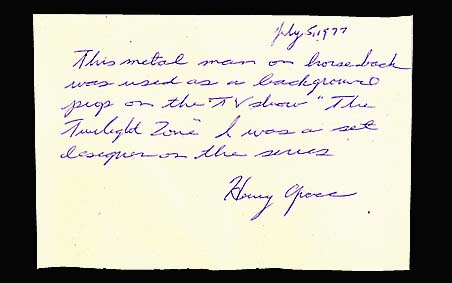 July 5, 1977
This metal man on horseback
was used as a background
prop on the TV show "The
Twilight Zone" I was a set
designer on the series
Henry